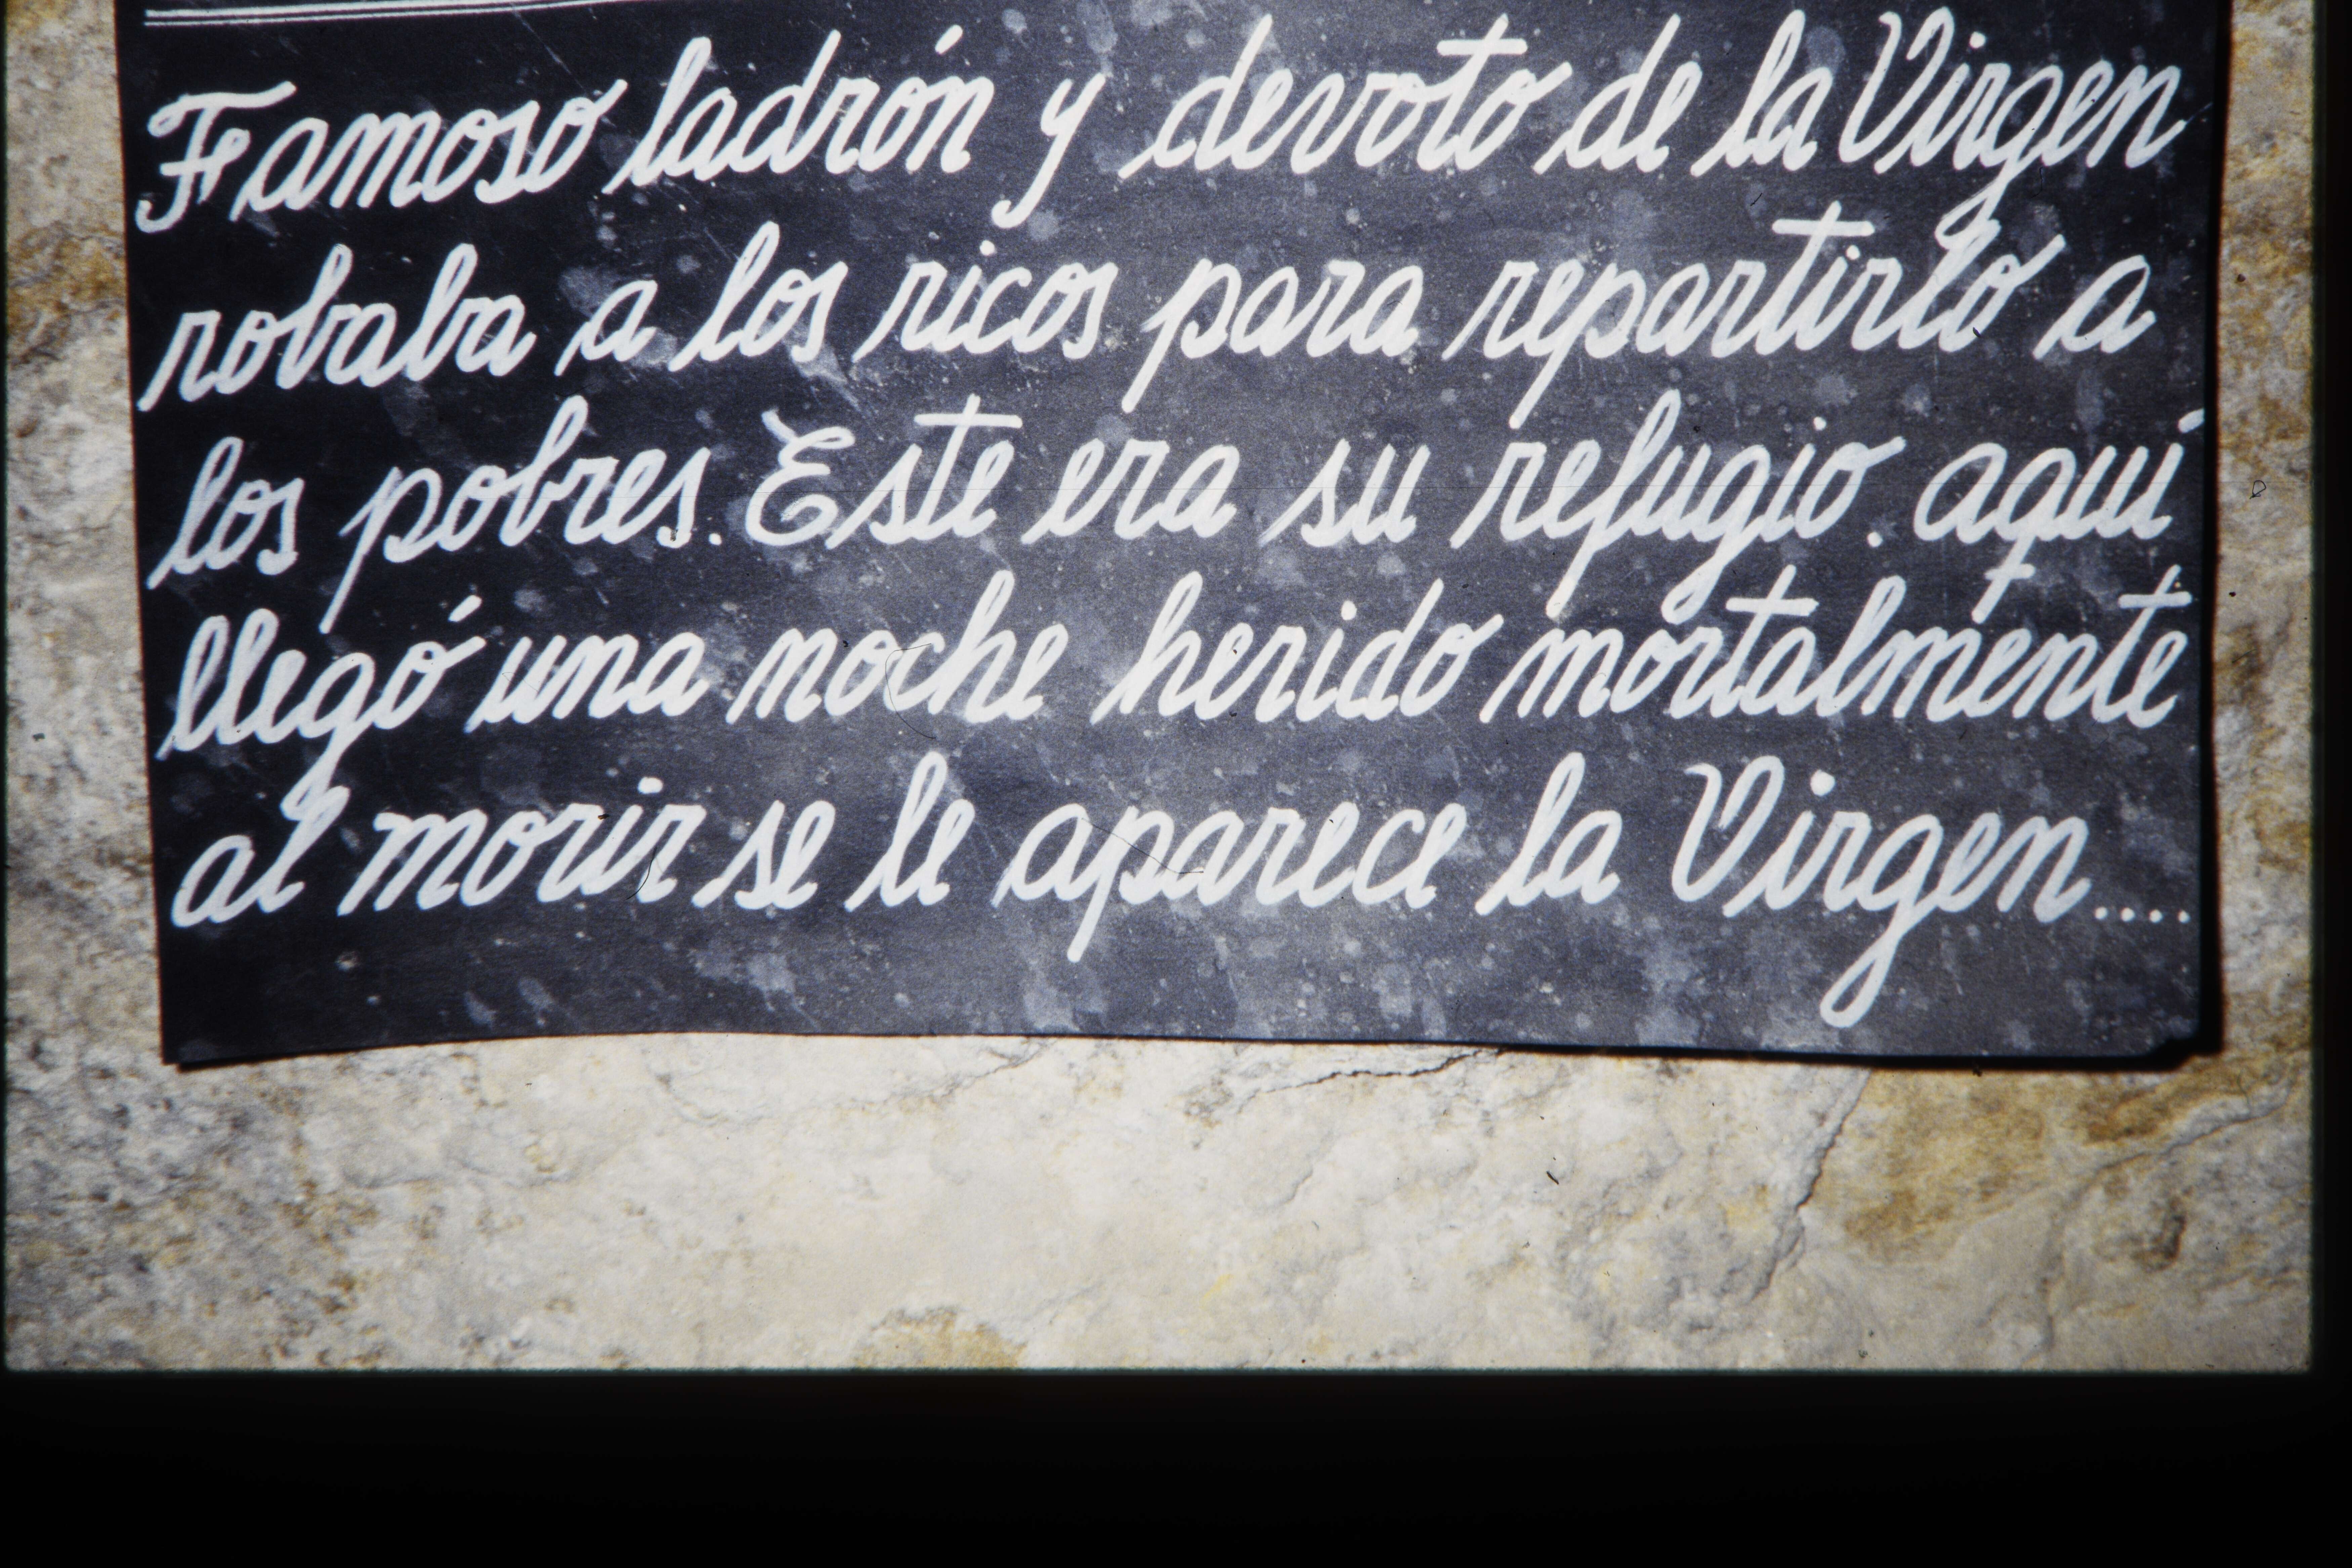 Famoso ladrón y devoto de la Virgen
robaba a los ricos para repartirlo a
los pobres. Este era su refugio. aquí
llegó una noche herido mortalmente
al morir se le aparece la Virgen....